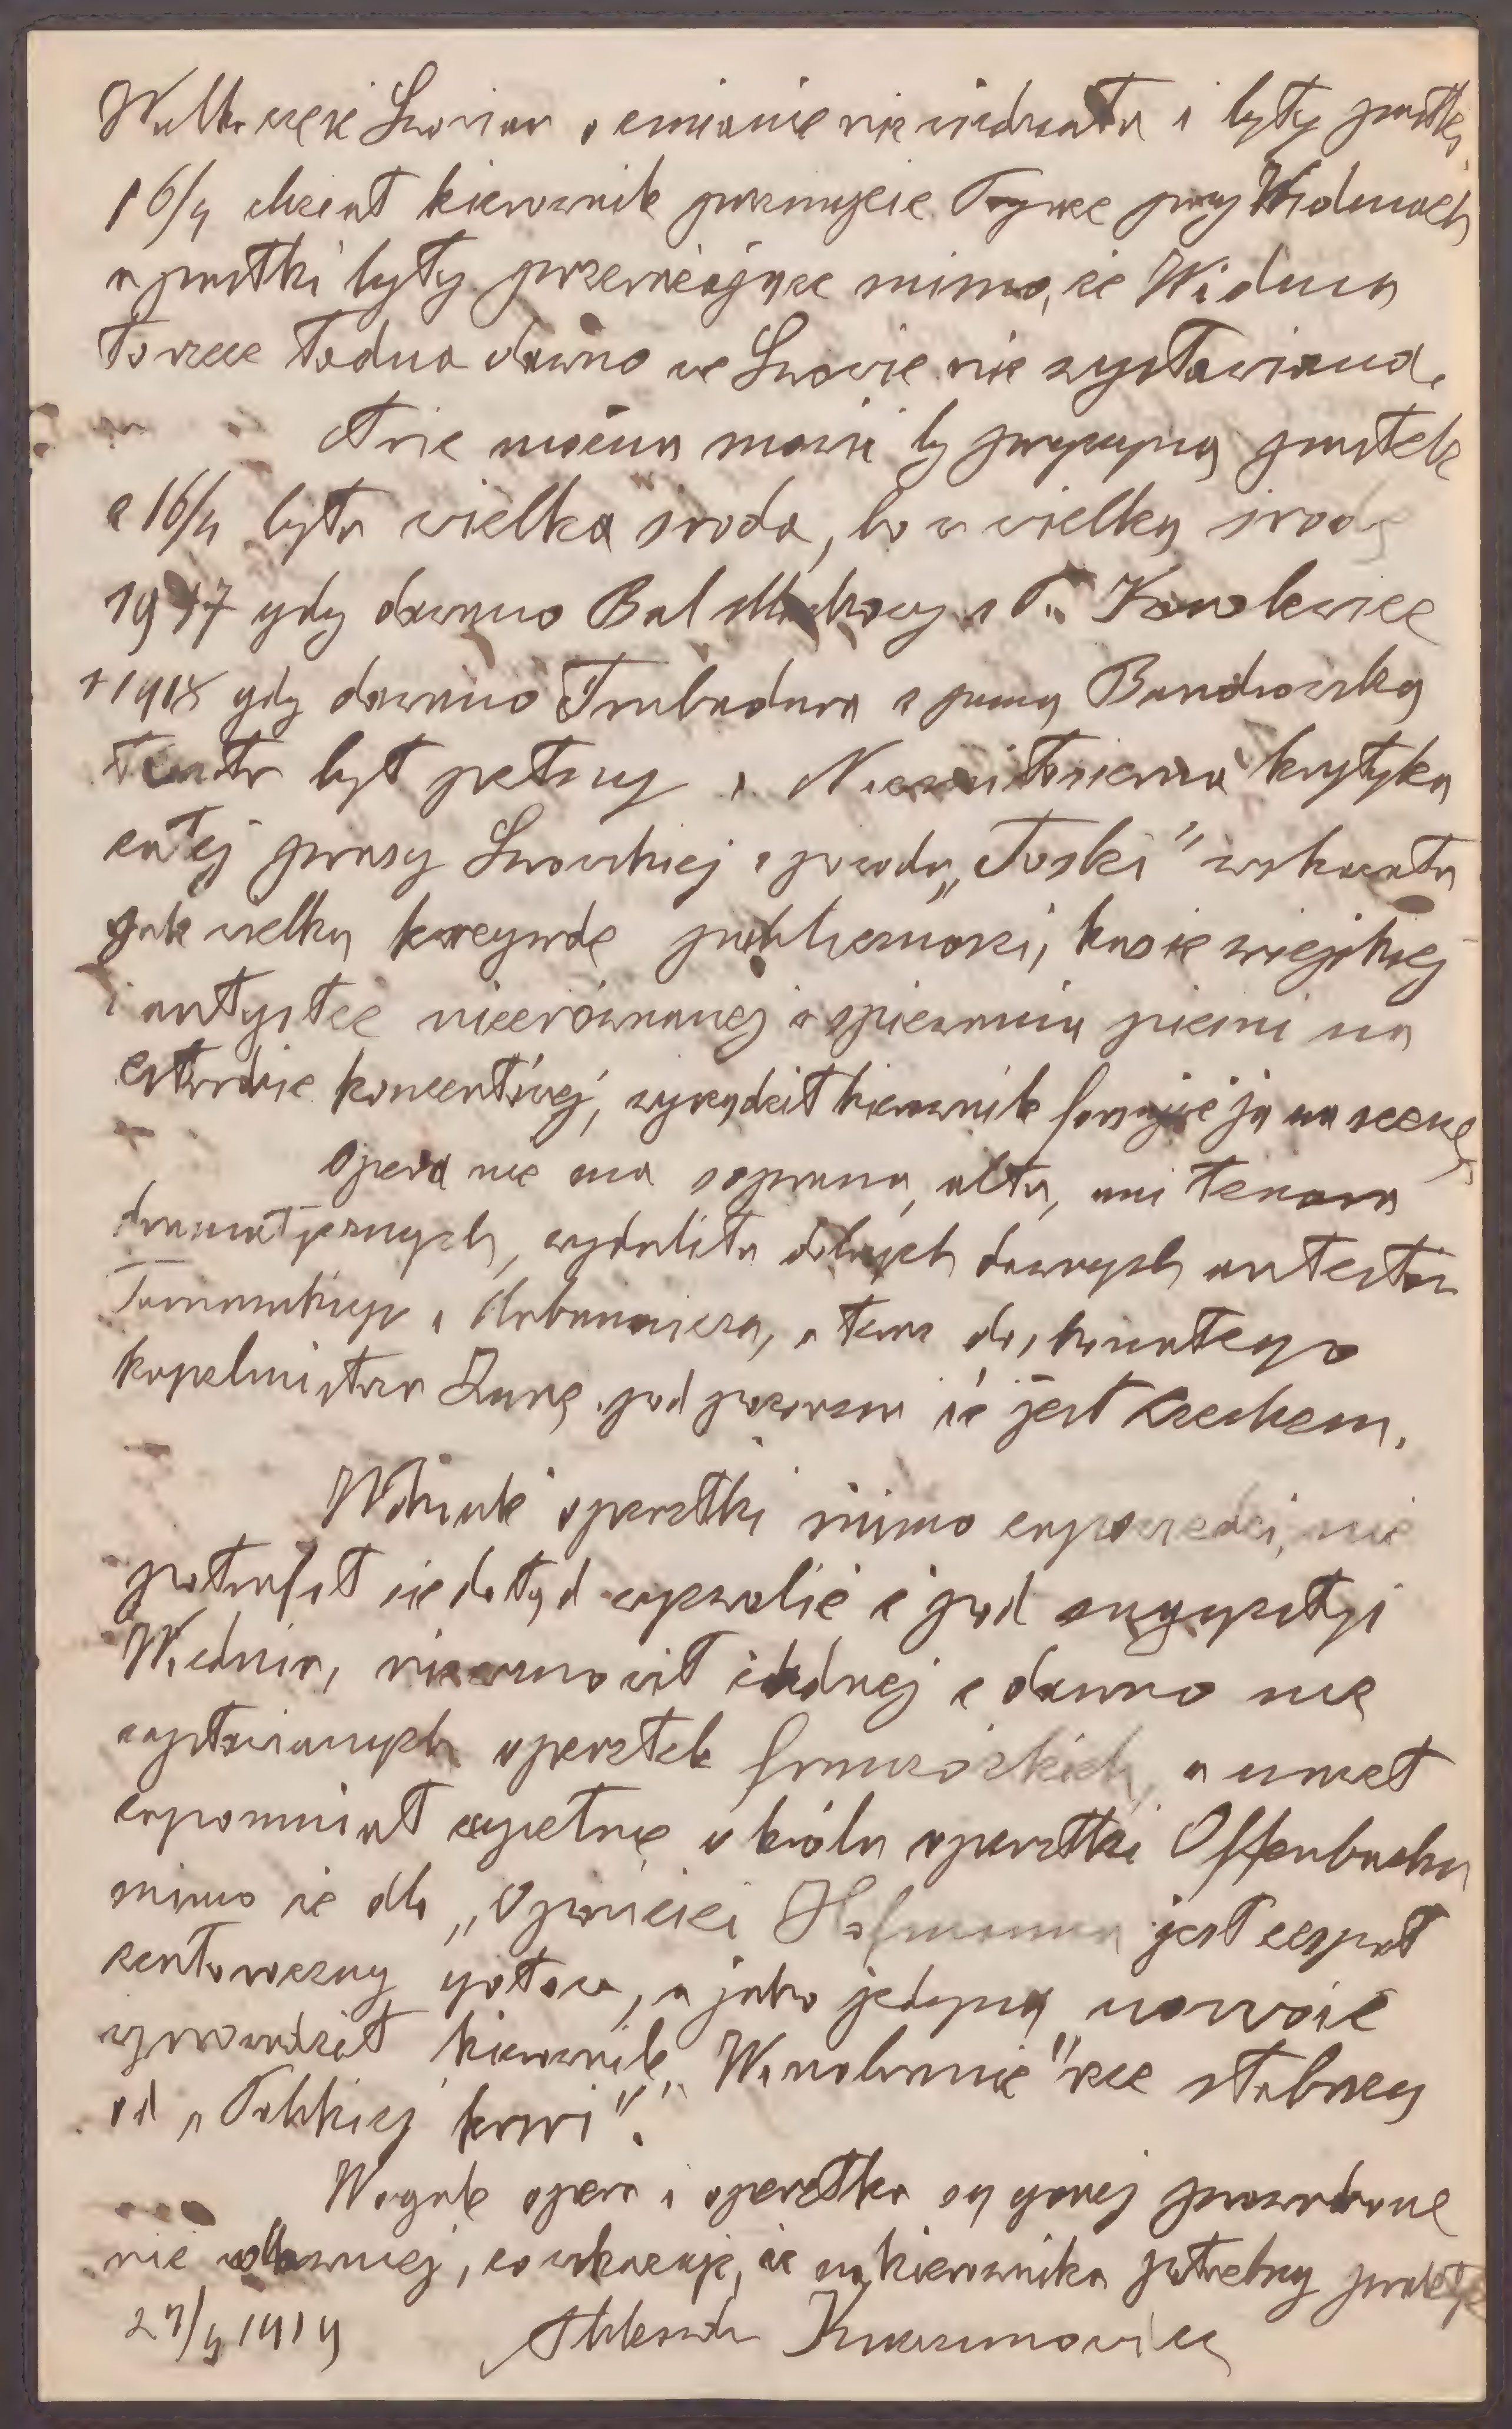 Wielka część Lwowian o zmianie nie wiedziała i były pustki.
16/4 chciał kierownik pozmycie Tryce przy Widmach
a pustki były przerażające mimo, że Widma
to rzecz ładna dawno we Lwowie nie wystawiana.
Nie można mówić by przyczyną pustek
z 16/4 była wielka środa, bo w wielką środę
1917 gdy dawano Bal maskowy z P. Korolewicz
i 1918 gdy dawano Trubadura z panną Bandrowską
teatr był pełny. Niezmiłosierna krytyka
całej prasy Lwowskiej z powodu „Toski" wskazała
jak wielką krzywdę publiczności, kasie miejskiej
i artystce niezrównanej w śpiewaniu pieśni na
estradzie koncertowej, wyrządził kierownik forsując ją na scenę.
Opera nie ma soprana, alta, ani tenora
dramatycznych, wydaliła dobrych dawnych artystów
Tarnawskiego i Urbanowicza, a teraz doskonałego
kapelmistrza Zunę pod pozorem że jest Czechem.
Wdziale operetki mimo zapowiedzi, nie
potrafił się dotąd wyzwolić z pod sugestji
Wiednia, nie wznowił żadnej z dawno nie
wystawianych operetek francuskich, a umiał
zapomniał zupełnie o królu operetki Offenbachu
mimo że dla „Opowieści Hofmanna jest zespół
gotów, a jako jedyną nowość
wprowadził kierownik „Winobranie" rzecz słabszą
od „Polskiej krwi".
Wogóle opera i operetka są gorzej prowadzone
niż dawniej, co wskazuje, że na kierownika potrzebny praktyk
27/4 1919 Aleksander